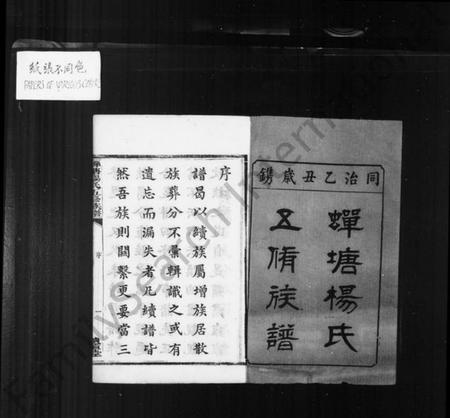 紙張不同色
PAPERS OF VARIOUS COLORS
同治乙丑歲鐫
蟬塘楊氏
五脩族譜
序
譜曷以續族屬增族居散
族葬分不彙輯識之或有
遺忘而漏失者凡續譜皆
然吾族則關繫更要當三
序
一
FamilySearch International